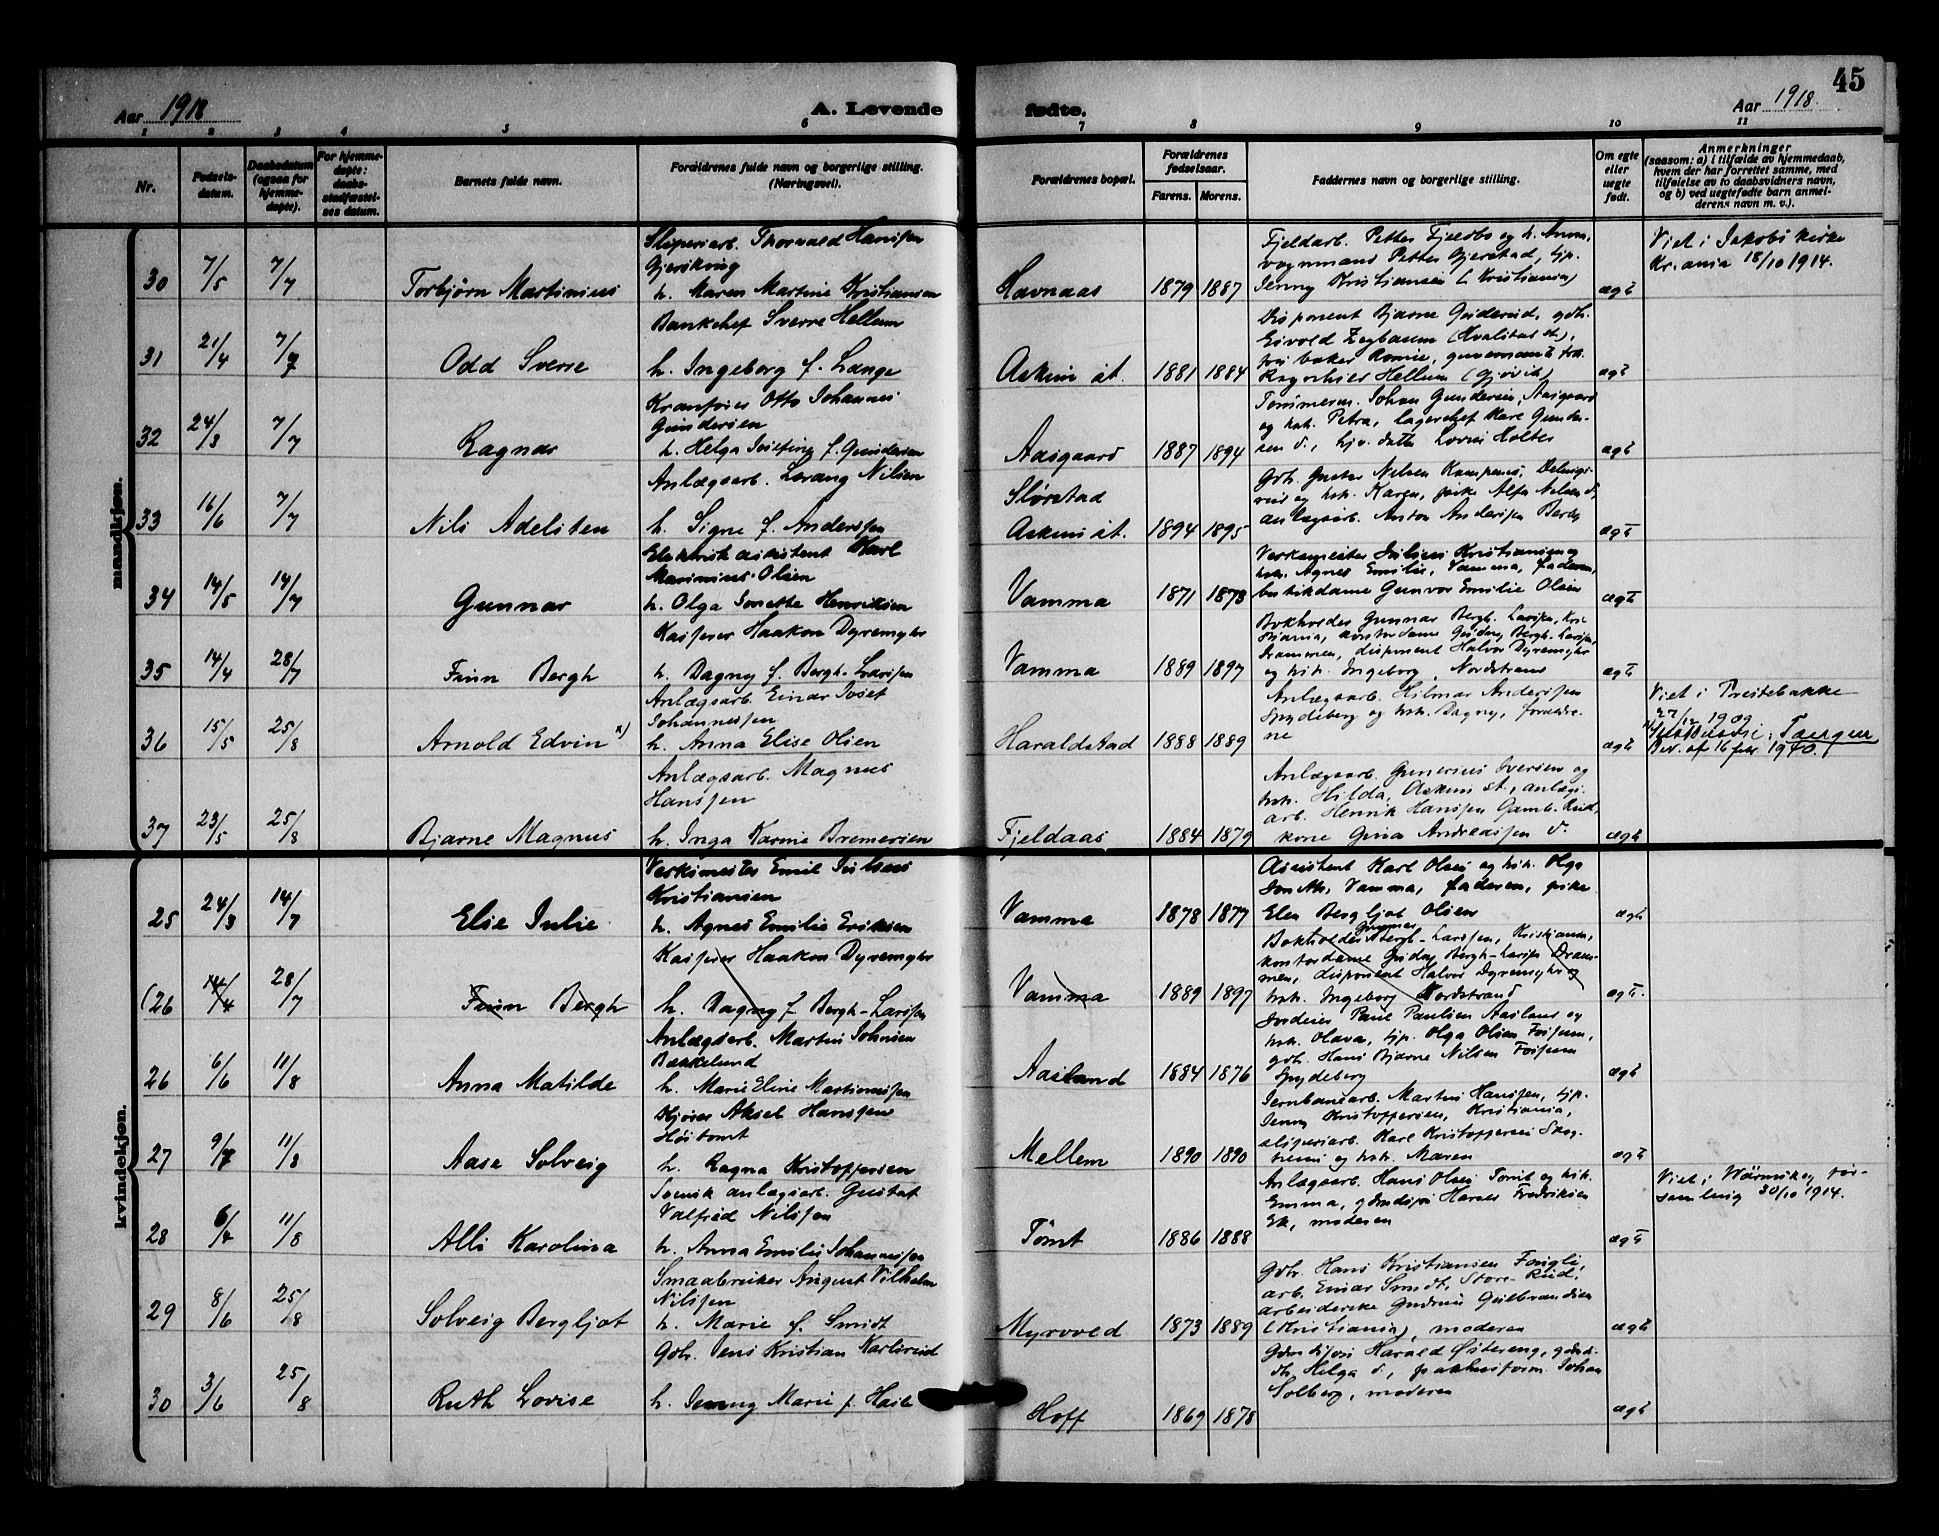 45
Aar 1918
A. Levende
fødte.
Aar 1918.
1 2 3 4 5 6 7 8 9 10 11
Nr.
Fødsels-
datum.
Daabsdatum
(ogsaa for
hjemme-
døpte).
For hjemme-
døpte:
daabs-
stadfæstel-
ses datum.
Barnets fulde navn.
Forældrenes fulde navn og borgerlige stilling.
(Næringsvei).
Forældrenes bopæl.
Forældrenes
fødselsaar.
Farens. Morens.
Faddernes navn og borgerlige stilling.
Om egte
eller
uegte
født.
Anmerkninger
(saasom: a) i tilfælde av hjemmedaab,
hvem der har forrettet samme, med
tilføielse av to daabsvidners navn,
og b) ved uegtefødte barn anmel-
derens navn m. v.).
mandkjøn.
30 7/5 7/7 Torbjørn Martinius
Sliperiarb. Thorvald Hanssen
Gjersking
h. Maren Martine Kristiansen
Havnaas 1879 1887
Fjeldarb. Petter Fjeldbo og h. Anna,
vognmand Petter Gjerstad, tjp.
Jenny Kristiansen (Kristiania)
ægt
Viet i Jakobs kirke
Kr.ania 18/10 1914.
31 21/4 7/7 Odd Sverre
Bankchef Sverre Hellum
h. Ingeborg f. Lange
Askim st. 1881 1884
Disponent Bjarne Guderud, gdb.
Eivold
frk
Ragnhild Hellum (Gjøvik)
ægt
32 24/3 7/7 Ragnar
Kranfører Otto Johannes
Gundersen
h. Helga Josefine f. Gundersen
Aasgaard 1887 1894
Tømmerm. Johan Gundersen, Aasgaard
og hstr. Petra, lagerchef Kare Gunder-
sen d., hjv. datter Lovise Holter
ægt
33 16/6 7/7 Nils Adelsten
Anlægsarb. Lorang Nilsen
h. Signe f. Anderssen
Slørstad
Askim st. 1894 1895
Gdb. Gustav Nelsen Kampenes,
og hstr. Karen, pike Alfa Nelsen d.,
anlægsarb. Anton Anderssen Berby
ægt
34 14/5 14/7 Gunnar
Elektrisk assistent Karl
Marinius Olsen
h. Olga Jonette Henriksen
Vamma 1871 1878
Verksmester Julius Kristiansen og
hstr. Agnes Emilie, Vamma, faderen,
butikdame Gunvor Emilie Olsen
ægt
35 14/4 28/7 Finn Bergh
Kasserer Haakon Dyremyhr
h. Dagny f. Bergh-Larssen
Vamma 1889 1897
Bokholder Gunnar Bergh-Larssen, Kri-
stiania, kontordame Gudny Bergh-Larssen,
Drammen, disponent Halvor Dyremyhr
og hstr. Ingeborg, Nordstrand
ægt
36 15/5 25/8 Arnold Edvin x)
Anlægsarb. Einar Josef
Johannessen
h. Anna Elise Olsen
Haraldstad 1888 1889
Anlægsarb. Hilmar Anderssen
Spydeberg og hstr. Dagny, forældre-
ne
ægt
Viet i Prestebakke
27/12 1909
Torgun
Bev. af 16 febr 1940.
37 23/5 25/8 Bjarne Magnus
Anlægsarb. Magnus
Hanssen
h. Inga Karine Bremersen
Fjeldaas 1884 1879
Anlægsarb. Gunerius Iversen og
hstr. Hilda, Askim st., anlægs-
arb. Henrik Hanssen Gamb. Rud,
kone Gina Andreassen d.
ægt
kvindekjøn.
25 24/3 14/7 Else Julie
Verksmester Emil Julius
Kristiansen
h. Agnes Emilie Eriksen
Vamma 1878 1877
Assistent Karl Olsen og hstr. Olga
Jonette, Vamma, faderen, pike
Elen Bergljot Olsen
ægt
(26 14/4 28/7 Finn Bergh
Kasserer Haakon Dyremyhr
h. Dagny f. Bergh-Larssen
Vamma 1889 1897
Bokholder Gunnar Bergh-Larssen, Kristiania,
kontordame Gudny Bergh-Larssen Dram-
men, disponent Halvor Dyremyhr og
hstr. Ingeborg Nordstrand
ægt.
26 6/6 11/8 Anna Matilde
Anlægsarb. Martin Johnsen
Bækkelund
h. Marie Eline Martinussen
Aasland 1884 1876
Jordeier Paul Paulsen Aasland og
hstr. Olava, tjp. Olga Olsen Fossum,
gdb. Hans Bjarne Nilsen Fossum
Spydeberg
ægt
27 9/7 11/8 Aase Solveig
Kjører Aksel Hanssen
Høitomt
h. Ragna Kristoffersen
Mellem 1890 1890
Jernbanearb. Martin Hanssen, tjp.
Jenny Kristoffersen, Kristiania,
sliperiarb. Karl Kristoffersen
og hstr. Maren
ægt
28 6/4 11/8 Alli Karolina
Svensk anlægsarb. Gustaf
Valfrid Nilssen
h. Anna Emilie Johannessen
Tømt 1886 1888
Anlægsarb. Hans Olsen Tømt og hstr.
Emma, Harald Fredriksen
Ek, moderen
ægt
Viet i Wärmskog for-
samling 30/10 1914.
29 8/6 25/8 Solveig Bergljot
Smaabruker August Vilhelm
Nilssen
h. Marie f. Smidt
Myrvold 1873 1889
Gdb. Hans Kristiansen Fonglie,
arb. Einar Smidt, Store-Rud,
arbeiderske Gudrun Gulbrandsen
(Kristiania), moderen
ægt
30 3/6 25/8 Ruth Lovise
Gdb. Jens Kristian Karlsrud
h. Jenny Marie f. Hasle
Hoff 1869 1878
Harald Østereng,
Helga d., Johan
Solberg, moderen
ægt